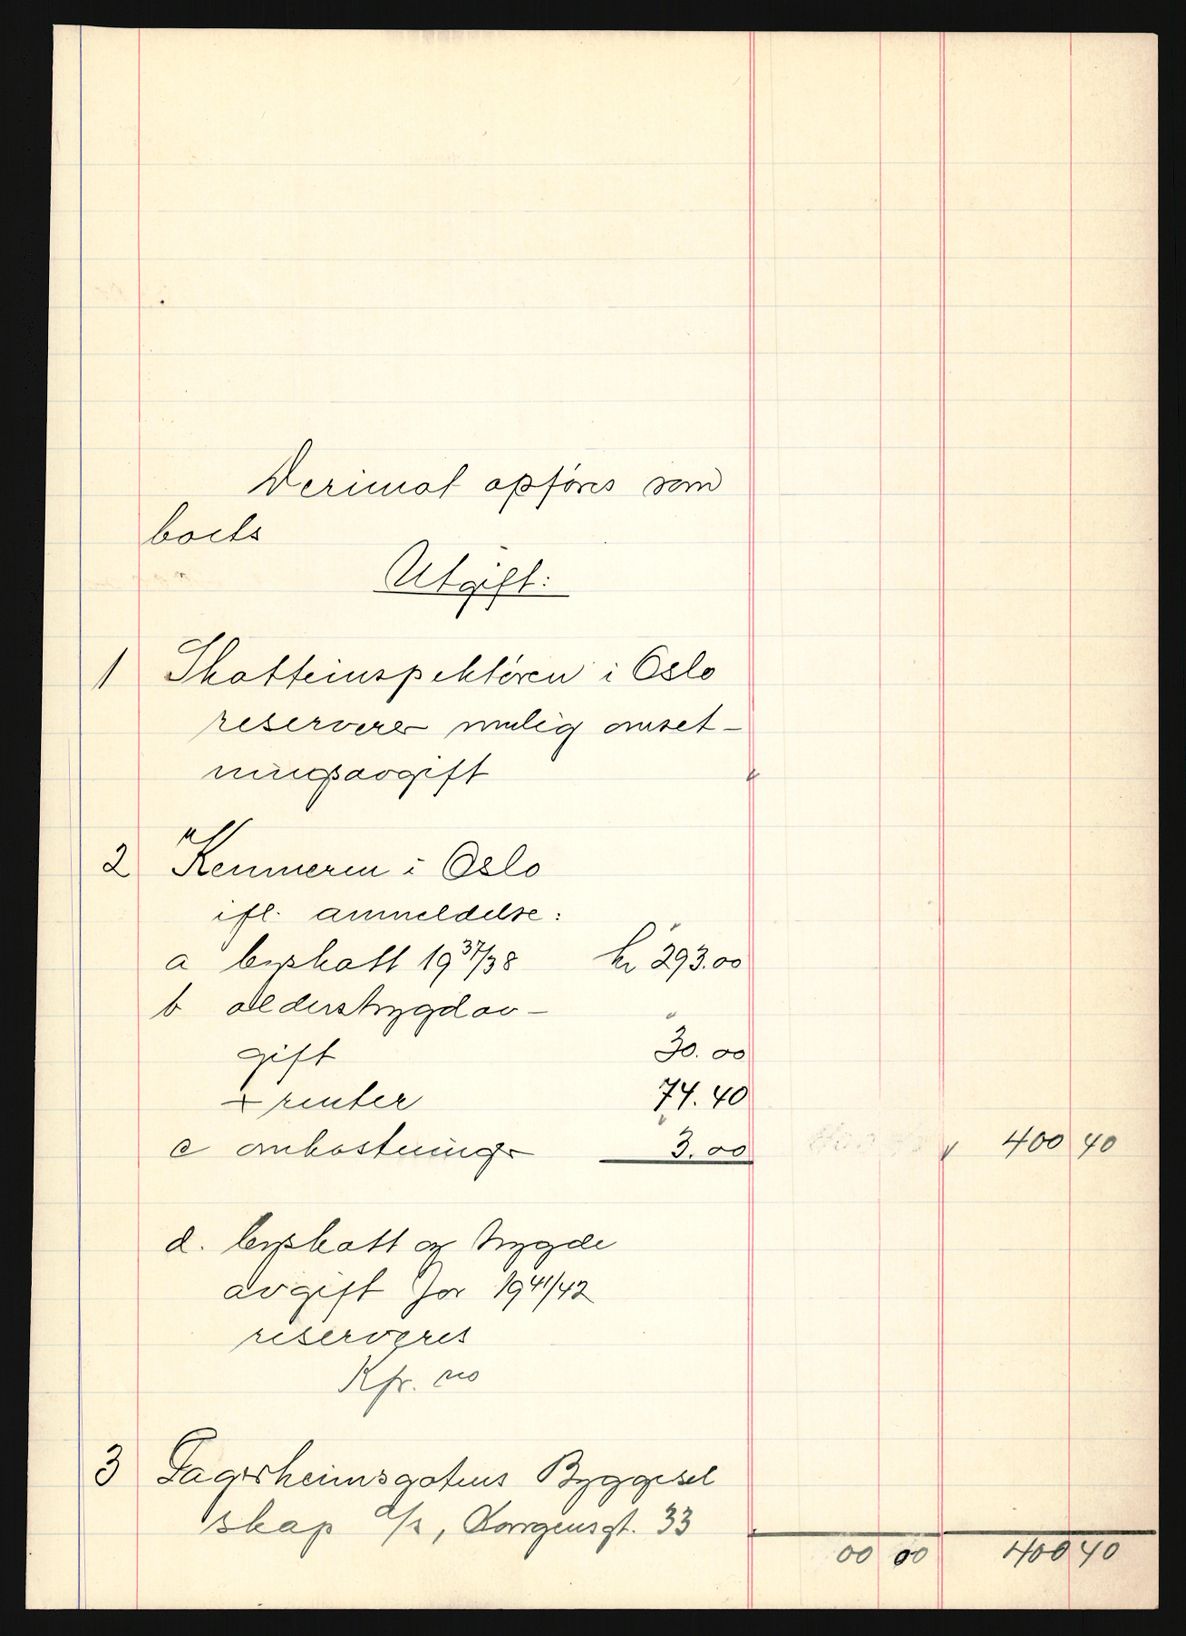 Derimot opføres som
boets
Utgift:
1 Skatteinspektøren i Oslo
reserverer mulig omset-
ningsavgift
2 Kemneren i Oslo
ifl. anmeldelse:
a byskatt 19 37/38 kr 293.00
b alderstrygdav-
gift 30.00
+ renter 74.40
c omkostninger 3.00 400 40
d. byskatt og trygde
avgift for 19 41/42
reserveres
Kfr. no
3 Fagerheimsgatens Byggesel
skap a/s, 33
00 00 400 40